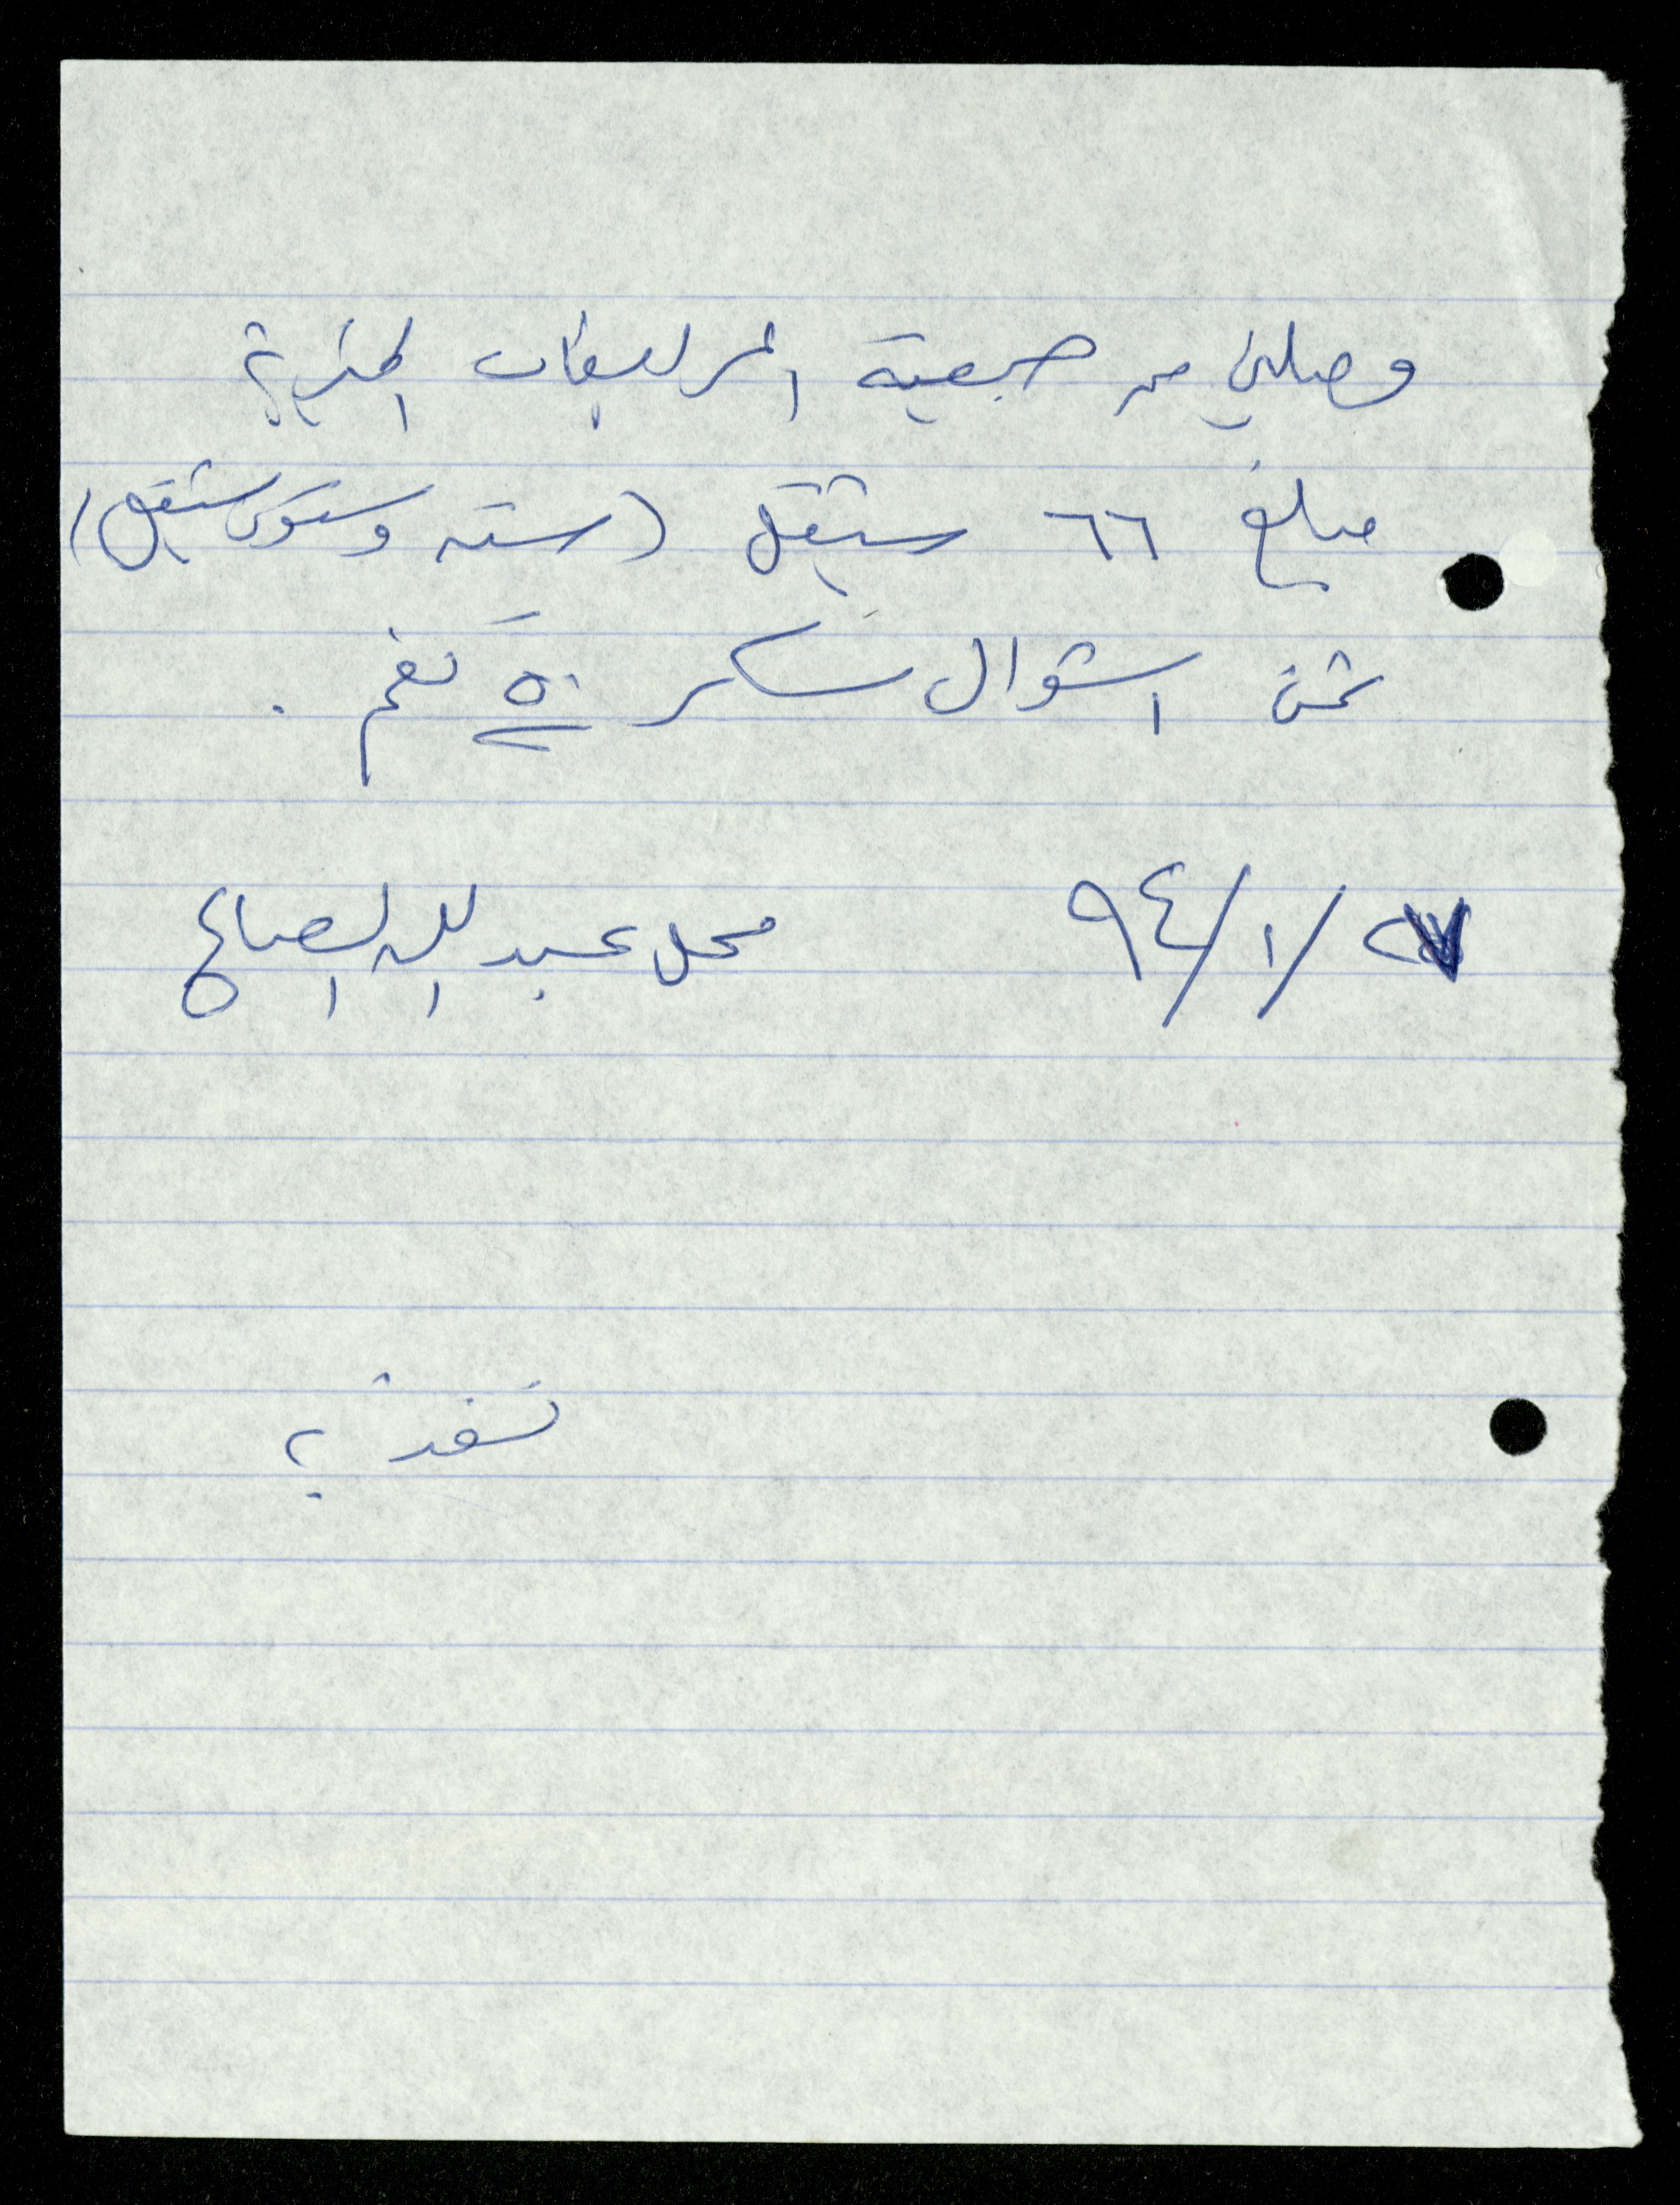 وصلني من جمعية المرابطات الخيرية
مبلغ ٦٦ شيقل (ستة وستون شيقل)
ثمن اشوال سكر ٥٠ كغم .
٢٧/١/٩٤ محل عبد الله الصباح